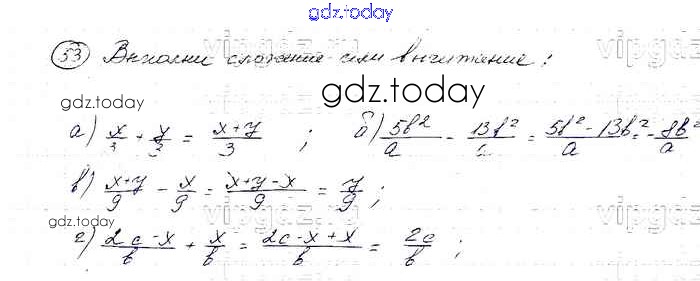 gdz.today
53 Выполни сложение или вычитание:
gdz.today
gdz.today
а) x/3 + y/3 = x+y/3 ; б) 5b²/a - 13b²/a = 5b²-13b²/a = -8b²/a
в) x+y/9 - x/9 = x+y-x/9 = y/9 ;
gdz.today
г) 2c-x/b + x/b = 2c-x+x/b = 2c/b ;